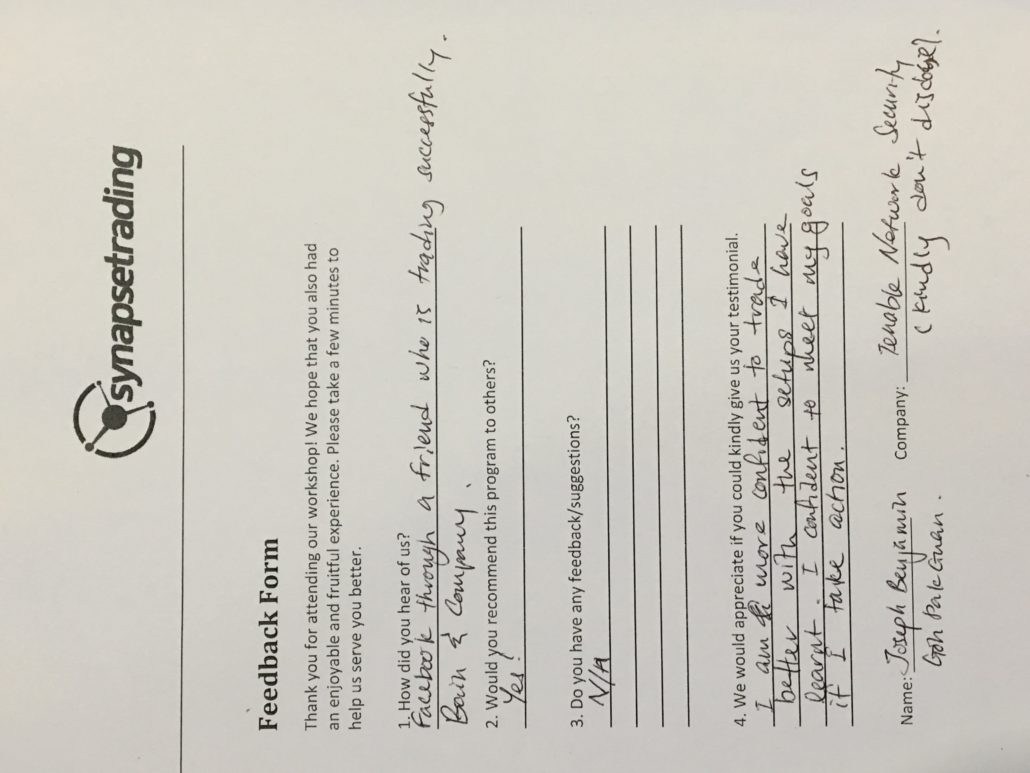 synapsetrading
Feedback Form
Thank you for attending our workshop! We hope that you also had
an enjoyable and fruitful experience. Please take a few minutes to
help us serve you better.
1. How did you hear of us?
Facebook through a friend who is trading successfully.
Bain & Company.
2. Would you recommend this program to others?
Yes!
3. Do you have any feedback/suggestions?
N/A
4. We would appreciate if you could kindly give us your testimonial.
I am more confident to trade
better with the setups I have
learnt. I confident to meet my goals
if I take action.
Name: Joseph Benjamin Company: Tenable Network Security
Goh Pak Guan. (Kindly don't disclose).